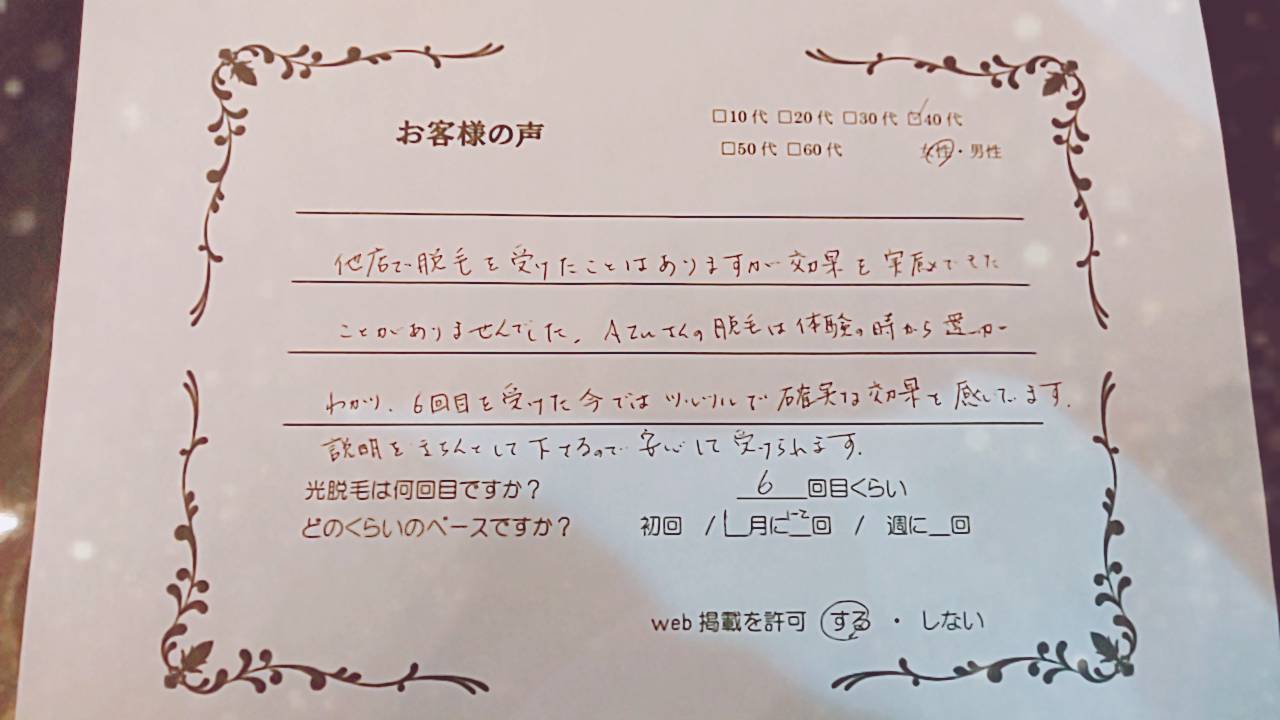 お客様の声
□10代 □20代 □30代 ☑40代
□50代 □60代 女性・男性
他店で脱毛を受けたことはありますが効果を実感できた
ことがありませんでした。Azuさんの脱毛は体験の時から違いが
わかり、6回目を受けた今ではツルツルで確実な効果を感じています。
説明をきちんとして下さるので安心して受けられます。
光脱毛は何回目ですか? 6回目くらい
どのくらいのペースですか? 初回 / 月に1~2回 / 週に__回
web掲載を許可 する ・ しない